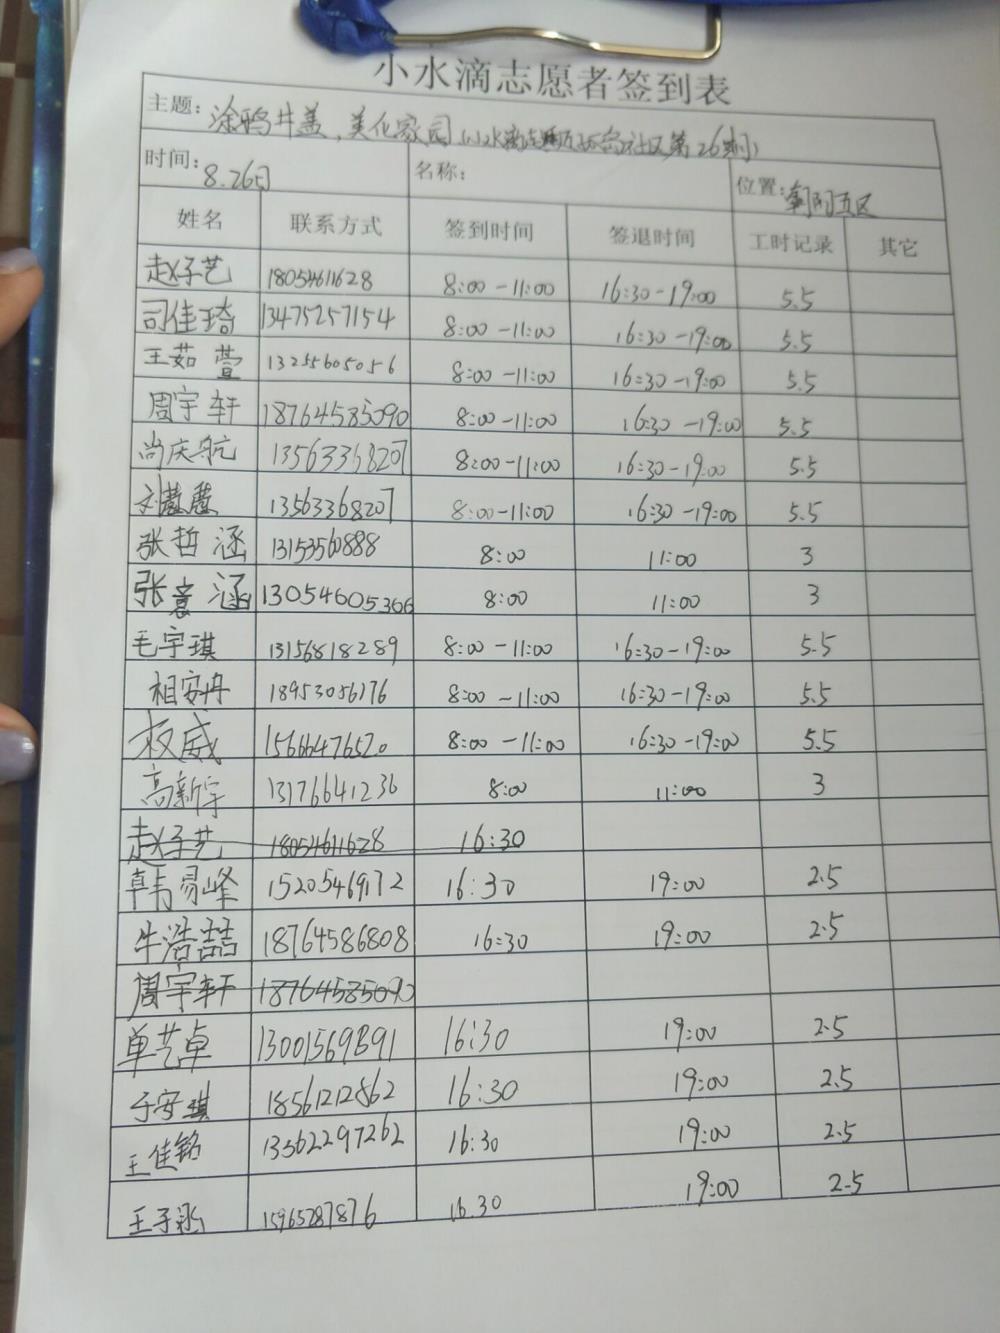 小水滴志愿者签到表
主题: 涂鸦井盖、美化家园 社区第26期)
时间: 8.26日 名称: 位置: 朝阳五区
姓名 联系方式 签到时间 签退时间 工时记录 其它
赵子艺 18054611628 8:00-11:00 16:30-19:00 5.5
司佳琦 13475257154 8:00-11:00 16:30-19:00 5.5
王茹萱 13255605056 8:00-11:00 16:30-19:00 5.5
周宇轩 18764585090 8:00-11:00 16:30-19:00 5.5
尚庆航 13563368207 8:00-11:00 16:30-19:00 5.5
刘慧慧 13563368207 8:00-11:00 16:30-19:00 5.5
张哲涵 13153560888 8:00 11:00 3
张意涵 13054605366 8:00 11:00 3
毛宇琪 13156818289 8:00-11:00 16:30-19:00 5.5
相安冉 18953056176 8:00-11:00 16:30-19:00 5.5
权威 15666476520 8:00-11:00 16:30-19:00 5.5
高新宇 13176641236 8:00 11:00 3
赵子艺 18054611628 16:30
韩易峰 15205469172 16:30 19:00 2.5
牛浩喆 18764586808 16:30 19:00 2.5
周宇轩 18764585090
单艺卓 13001569891 16:30 19:00 2.5
于安琪 18561212862 16:30 19:00 2.5
王佳铭 13562297262 16:30 19:00 2.5
王子 15965287876 16.30 19:00 2.5